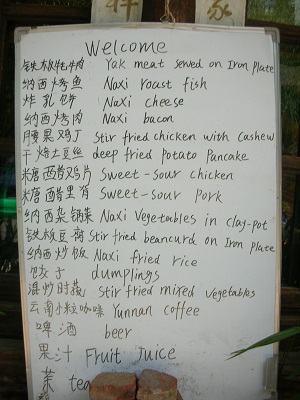 Welcome
铁板牦牛肉 Yak meat served on Iron Plate
纳西烤鱼 Naxi roast fish
炸乳饼 Naxi cheese
纳西烤肉 Naxi bacon
腰果鸡丁 Stir fried chicken with Cashew
干焙土豆丝 deep fried potato Pancake
糖醋鸡片 Sweet-sour chicken
糖醋里脊 Sweet-sour pork
纳西杂锅菜 Naxi Vegetables in clay-pot
铁板豆腐 Stir fried beancurd on Iron Plate
纳西炒饭 Naxi fried rice
饺子 dumplings
混炒时蔬 Stir fried mixed vegetables
云南小粒咖啡 Yunnan coffee
啤酒 beer
果汁 Fruit Juice
茶 tea